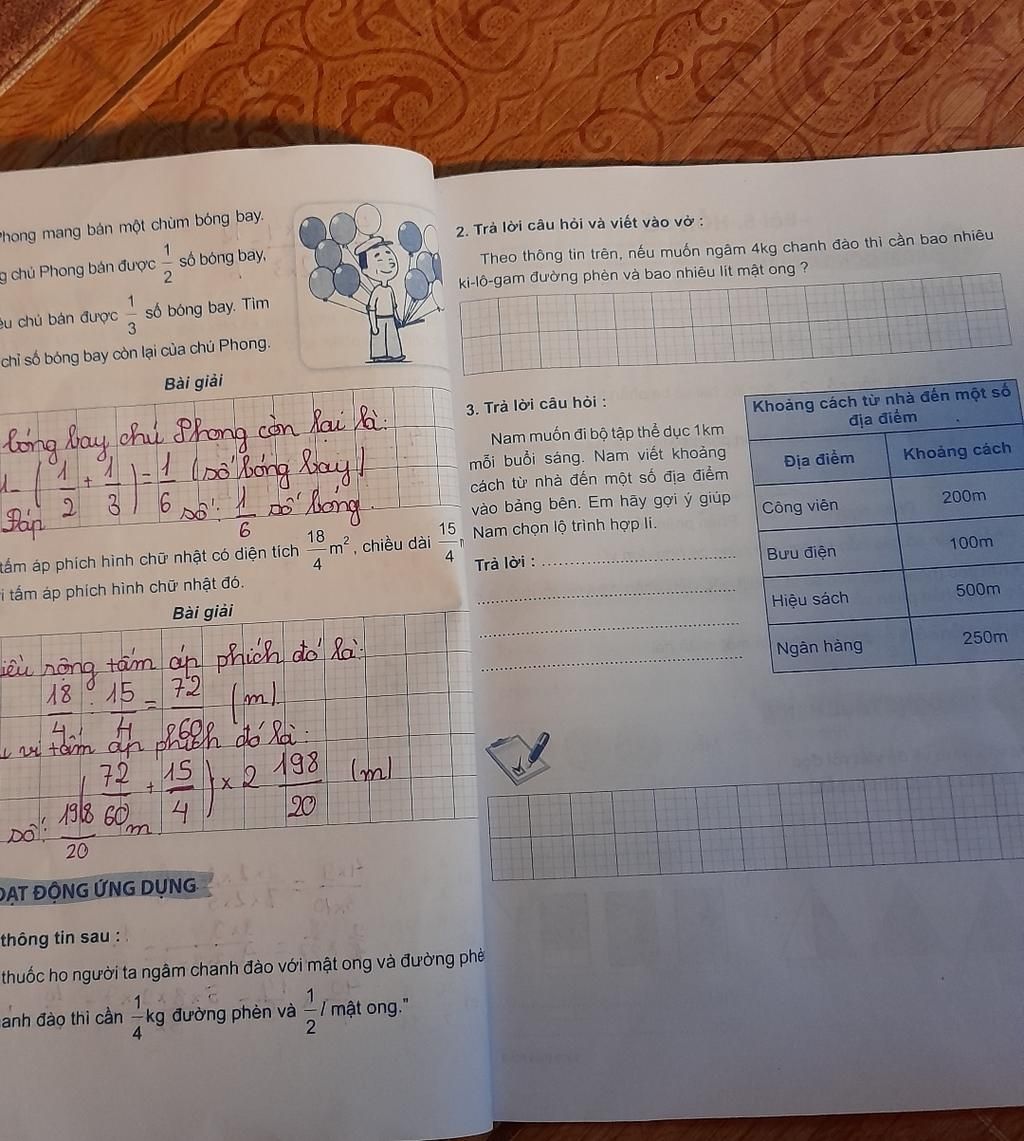 Phong mang bán một chùm bóng bay.
g chú Phong bán được 1/2 số bóng bay,
ều chú bán được 1/3 số bóng bay. Tìm
chỉ số bóng bay còn lại của chú Phong.
Bài giải
bóng bay chú Phong còn lại là:
1 - (1/2 + 1/3) = 1/6 (số bóng bay)
Đáp số: 1/6 số bóng.
tấm áp phích hình chữ nhật có diện tích 18/4 m², chiều dài 15/4
i tấm áp phích hình chữ nhật đó.
Bài giải
iều rộng tấm áp phích đó là:
18/4 : 15/4 = 72/60 (m)
u vi tấm áp phích đó là:
(72/60 + 15/4) × 2 198/20 (m)
số: 198/20 m
OẠT ĐỘNG ỨNG DỤNG
thông tin sau :
thuốc ho người ta ngâm chanh đào với mật ong và đường phè
anh đào thì cần 1/4 kg đường phèn và 1/2 l mật ong."
2. Trả lời câu hỏi và viết vào vở :
Theo thông tin trên, nếu muốn ngâm 4kg chanh đào thì cần bao nhiêu
ki-lô-gam đường phèn và bao nhiêu lít mật ong ?
3. Trả lời câu hỏi :
Nam muốn đi bộ tập thể dục 1km
mỗi buổi sáng. Nam viết khoảng
cách từ nhà đến một số địa điểm
vào bảng bên. Em hãy gợi ý giúp
Nam chọn lộ trình hợp lí.
Trả lời :
Khoảng cách từ nhà đến một số
địa điểm
Địa điểm Khoảng cách
Công viên 200m
Bưu điện 100m
Hiệu sách 500m
Ngân hàng 250m